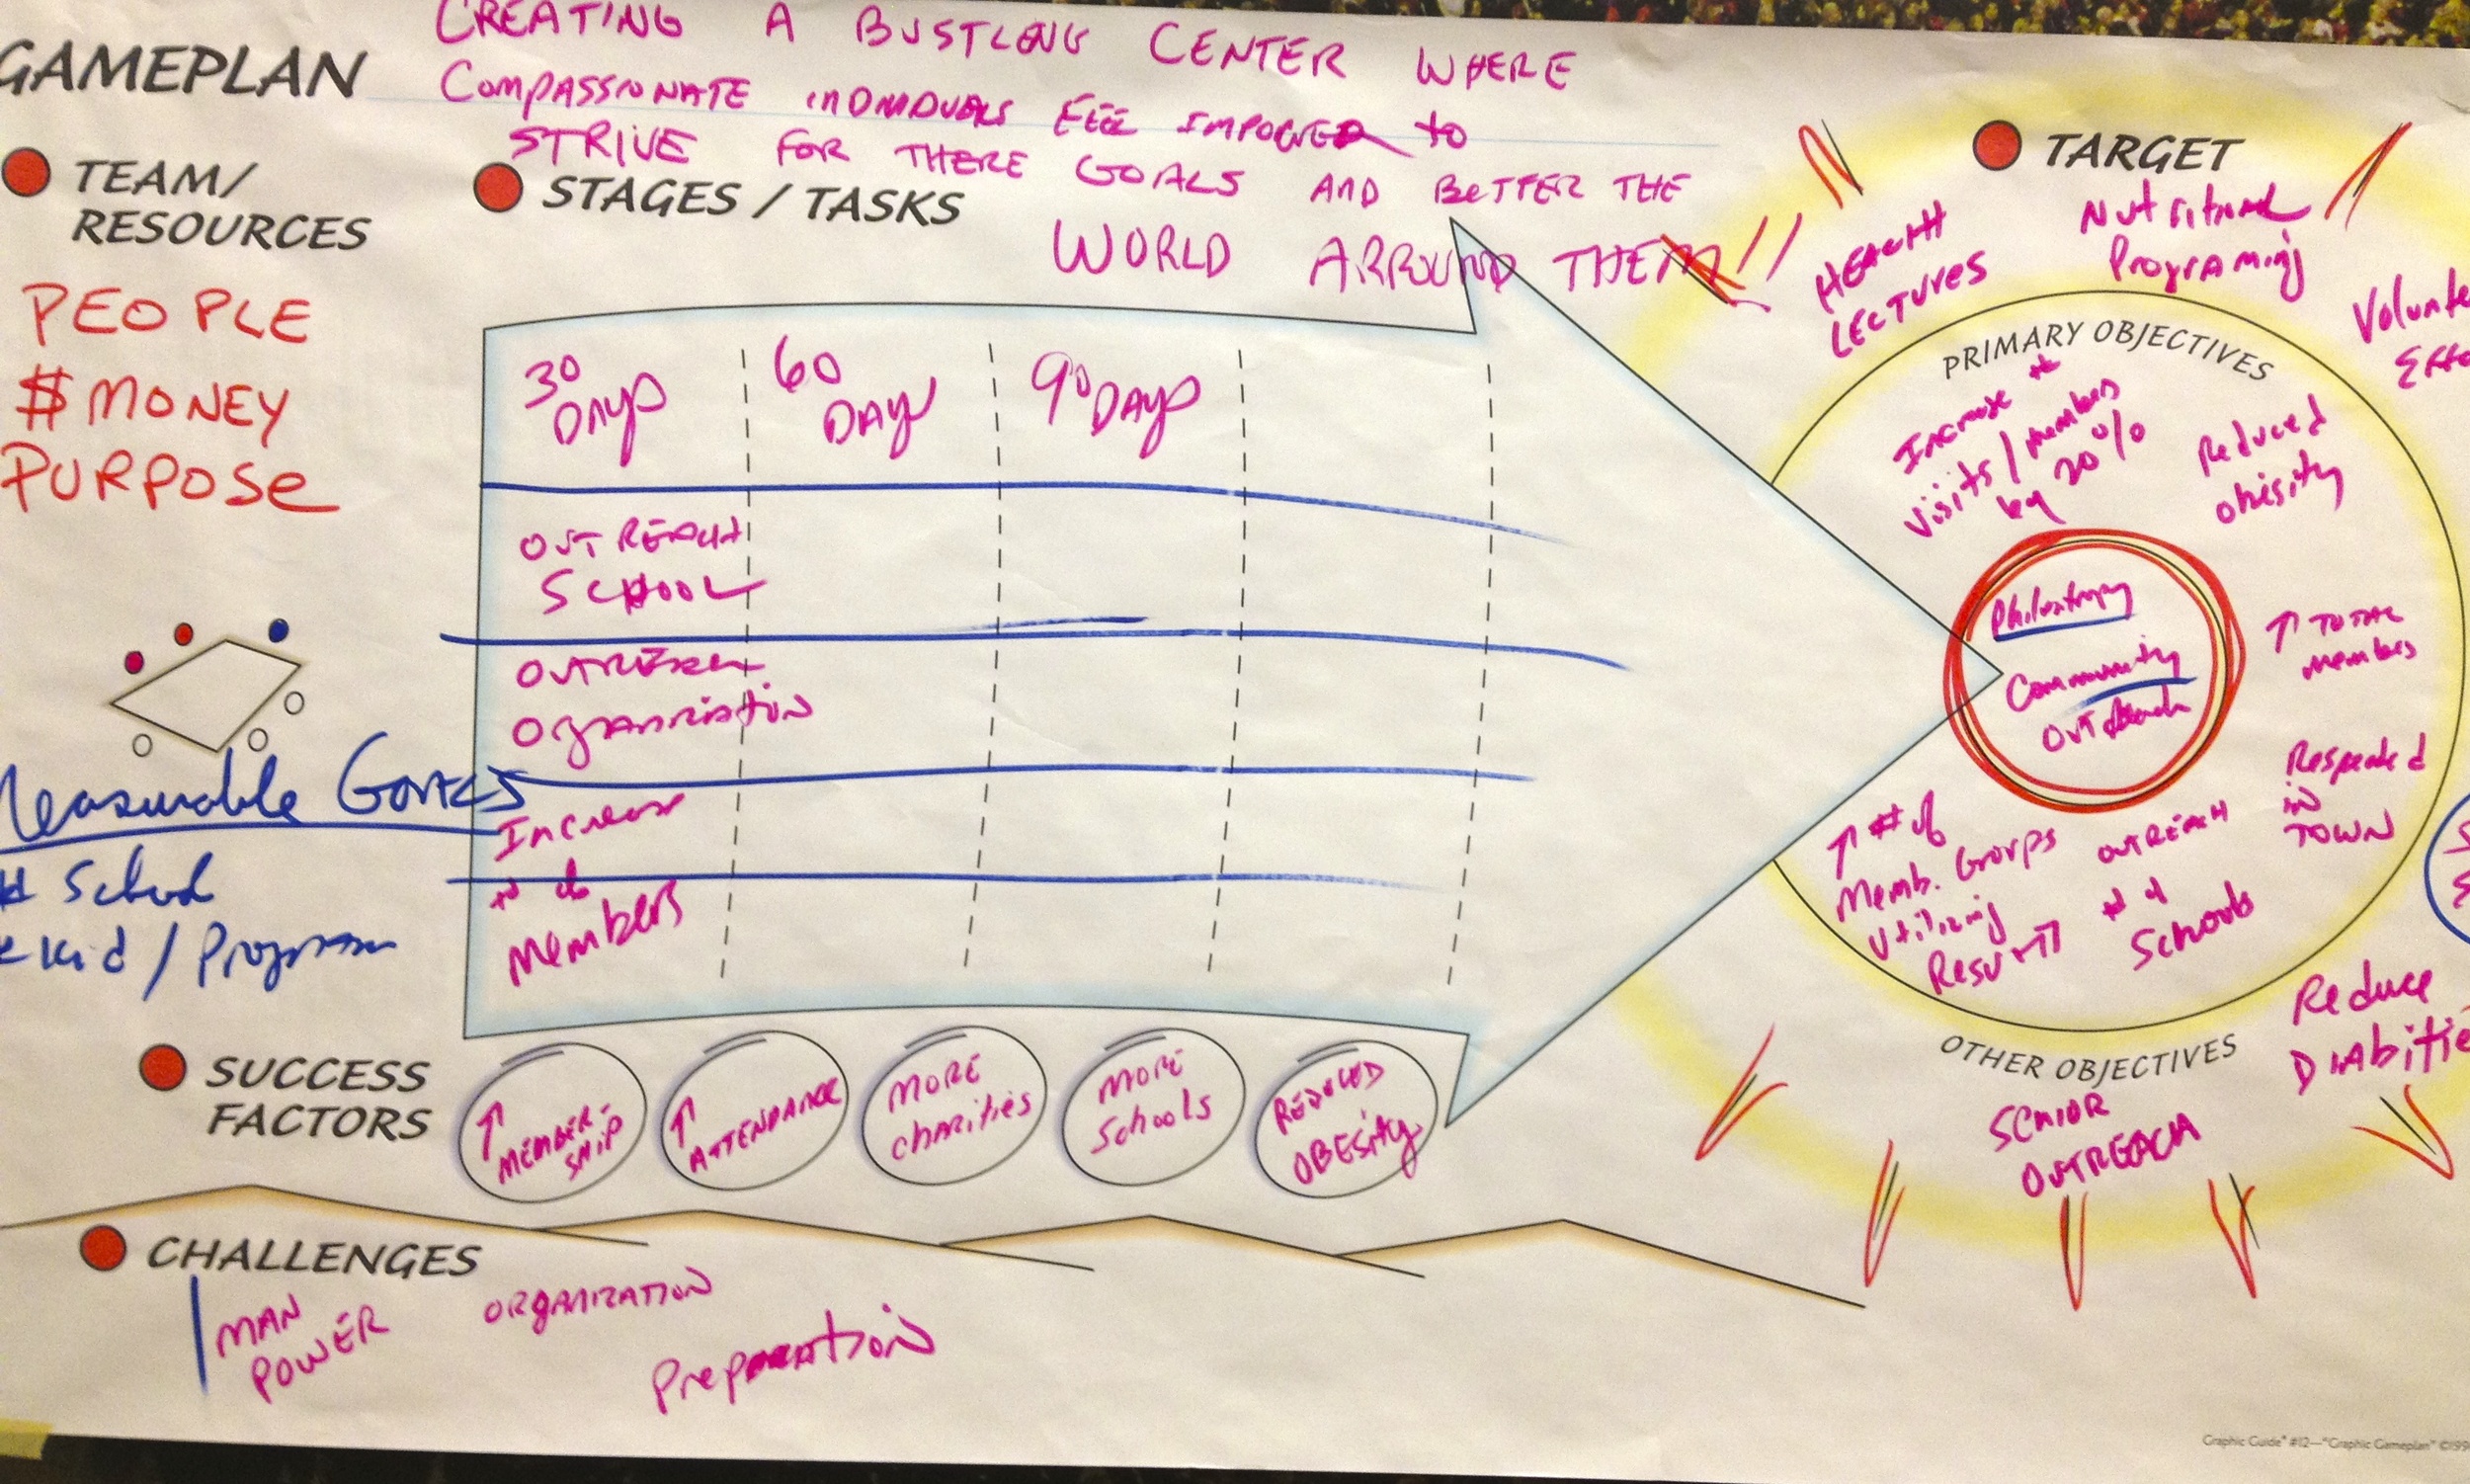 CREATING A BUSTLING CENTER WHERE
COMPASSIONATE INDIVIDUALS FEEL IMPOWERED to
STRIVE FOR THERE GOALS AND BETTER THE
WORLD ARROUND THEM!!
GAMEPLAN
TEAM/
RESOURCES
PEOPLE
$ MONEY
PURPOSE
Measurable GOALS
# School
Kid / Program
STAGES / TASKS
30
DAYS
60
DAY
90 DAYS
OUTREACH
SCHOOL
OUTREACH
Organization
Increase
# of
Members
SUCCESS
FACTORS
↑
MEMBER-
SHIP
↑
ATTENDANCE
MORE
charities
MORE
Schools
REDUCED
OBESITY
CHALLENGES
MAN
POWER
ORGANIZATION
Preparation
TARGET
HEALTH
LECTURES
Nutritional
Programing
Volunte
Effo
PRIMARY OBJECTIVES
Increase #
visits / members
by 20 %
Reduced
obisity
Philantropy
Community
Outreach
↑ TOTAL
Members
Respected
in
TOWN
↑ # of
Memb. Groups
Utilizing
OUTREACH
# of
Schools
OTHER OBJECTIVES
SENIOR
OUTREACH
Reduce
Diabitie
Graphic Guide® #12—"Graphic Gameplan" ©199